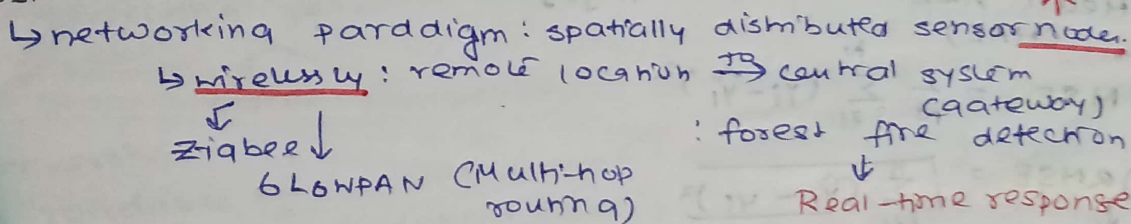 ↳networking paradigm : spatially distributed sensor nodes.
↳ wirelessly : remote location to⇒ central system
(gateway)
: forest fire detection
Zigbee
6LOWPAN (Multi-hop
routing)
Real-time response